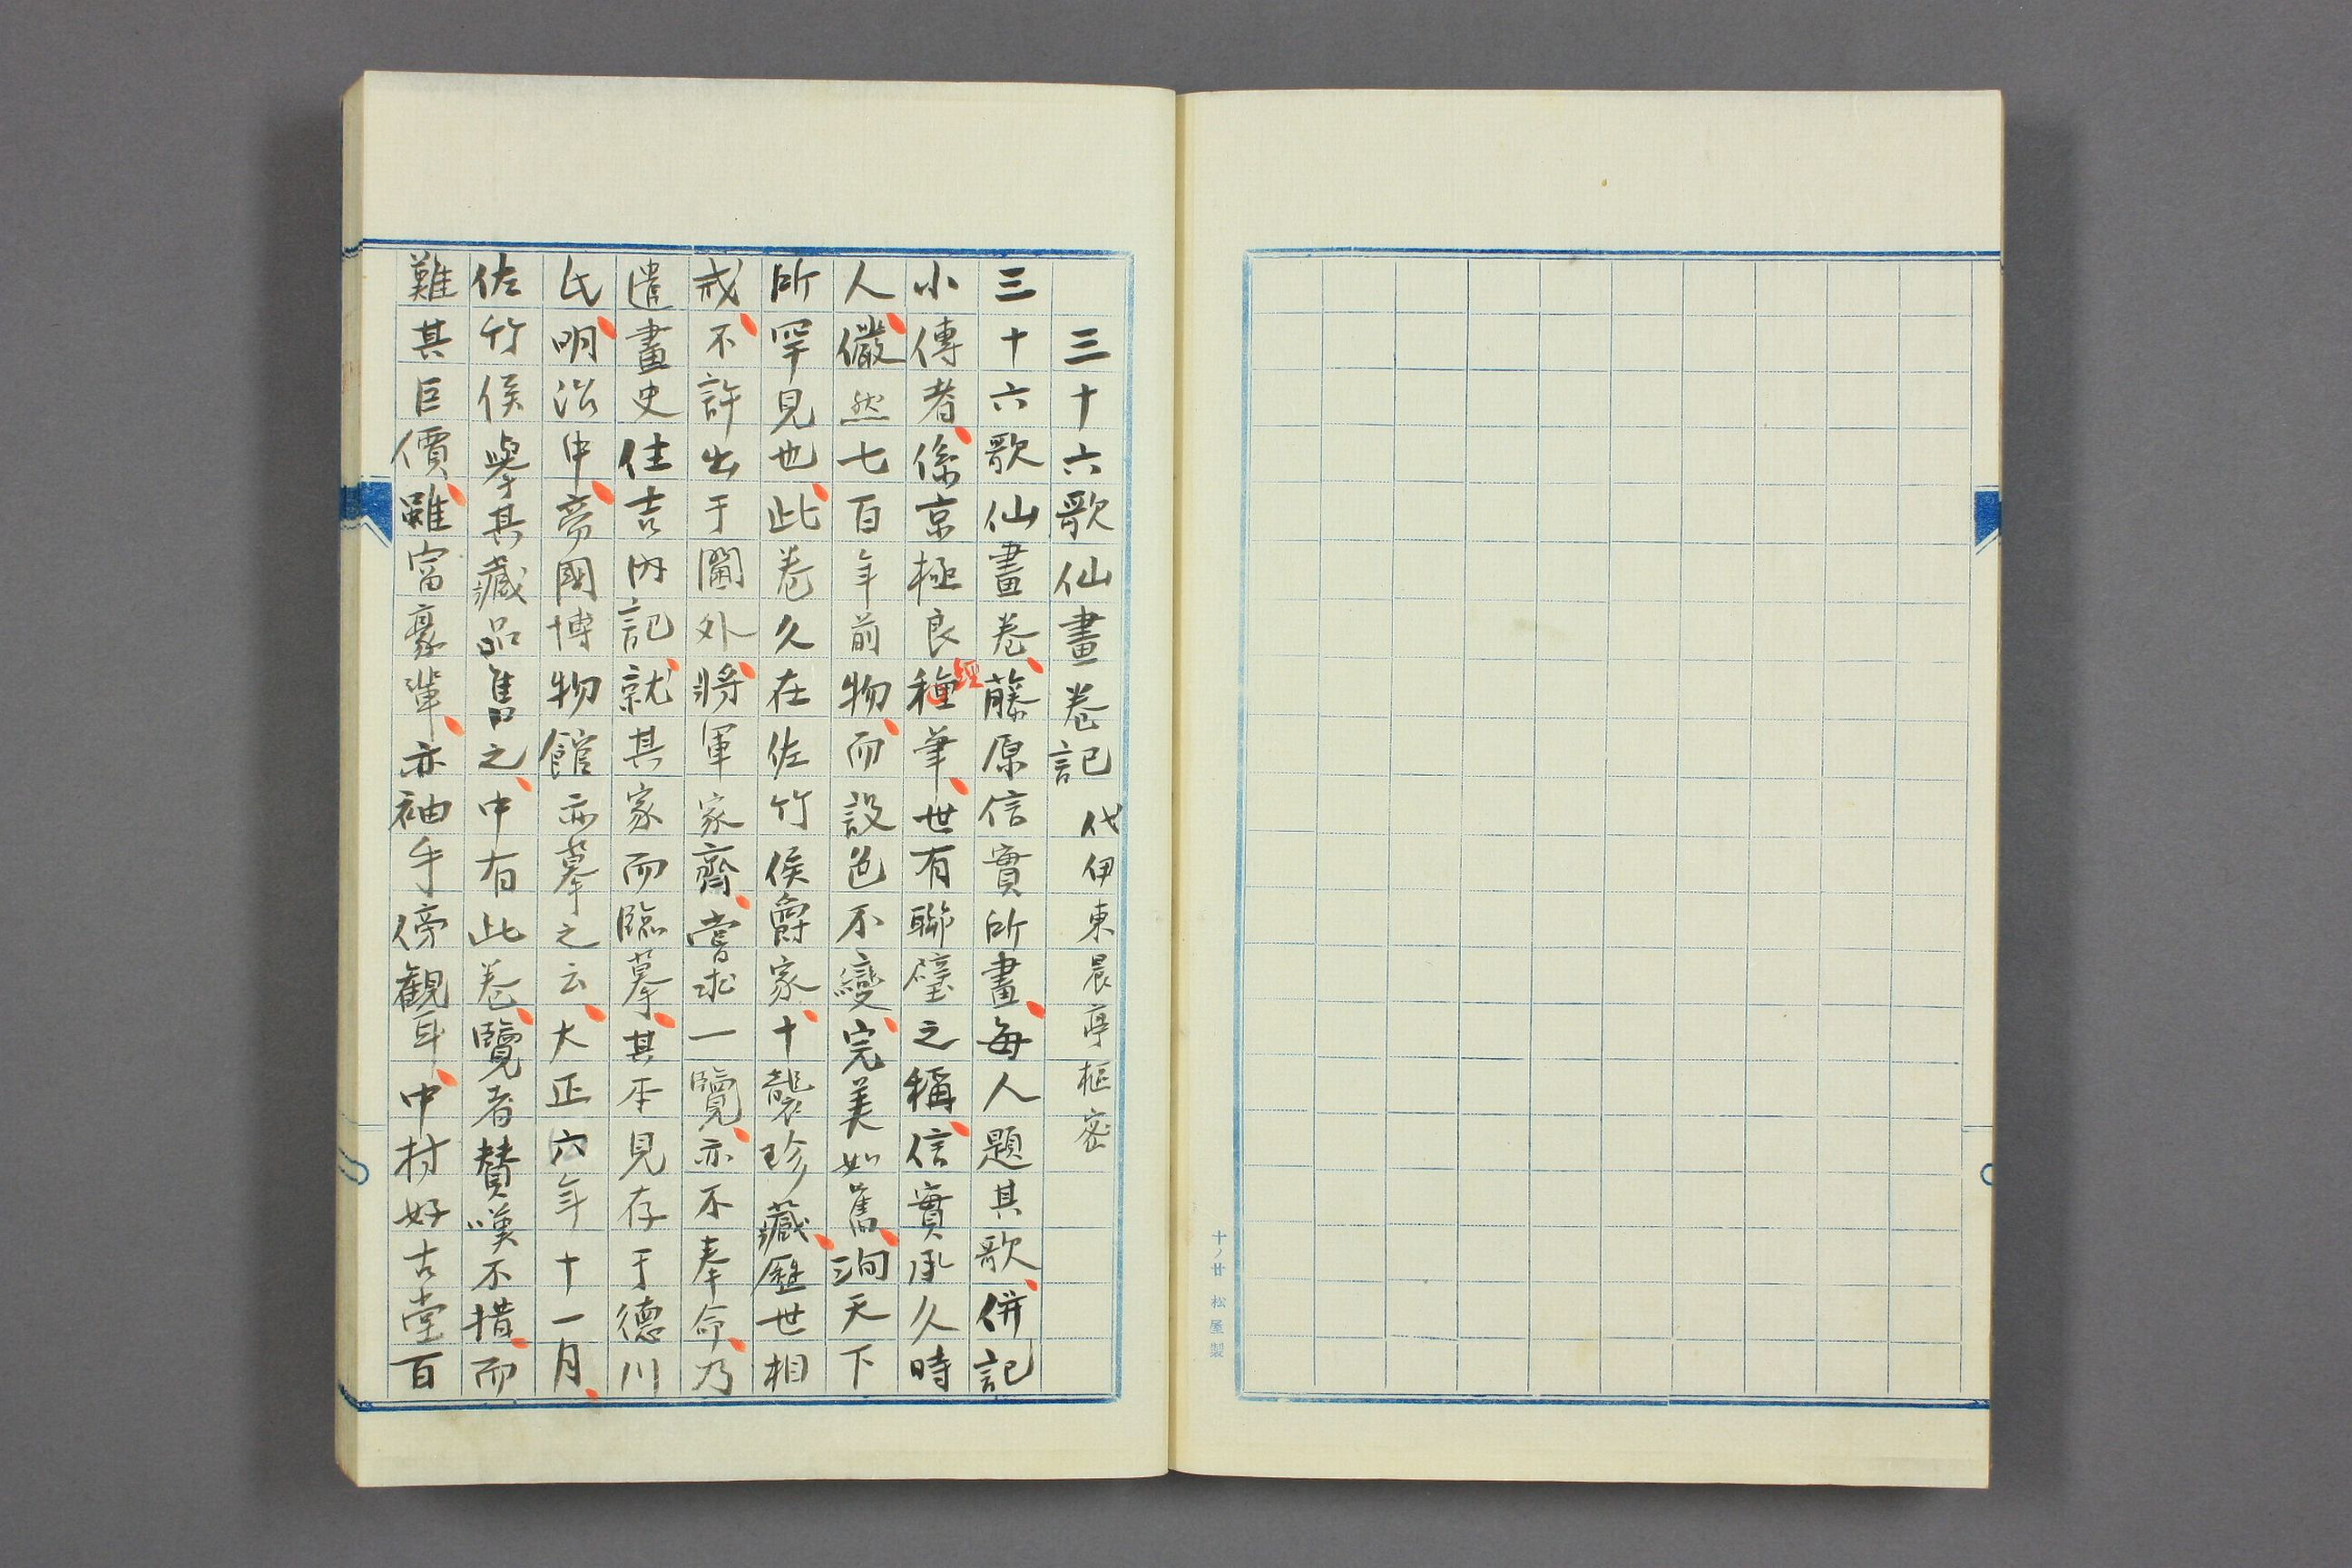 十ノ廿 松屋製
三十六歌仙畫卷記 代伊東晨亭枢密
三十六歌仙畫卷、藤原信實所畫、每人題其歌、併記
小傳者、係京極良種筆、世有聯璧之稱、信實承久時
經
人、儼然七百年前物、而設色不變、完美如舊、洵天下
所罕見也、此卷久在佐竹侯爵家、十襲珍藏、歷世相
戒、不許出于閫外、將軍家齊、嘗求一覽、亦不奉命、乃
遣畫史住吉内記、就其家而臨摹、其本見存于德川
氏、明治中、帝國博物館亦摹之云、大正六年十一月、
佐竹侯擧其藏品售之、中有此卷、覽者賛嘆不措、而
難其巨價、雖富豪輩、亦袖手傍観耳、中村好古堂百